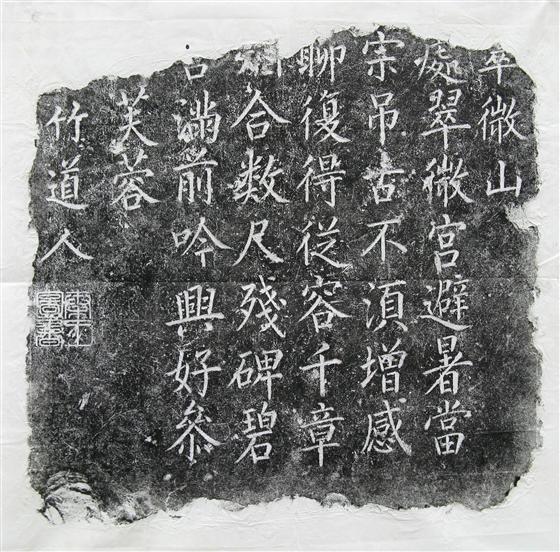 翠微山
處翠微宮避暑當
宗吊古不湏增感
聊復得從容千章
合数尺殘碑碧
滿前吟興好叅
芙蓉
竹道人